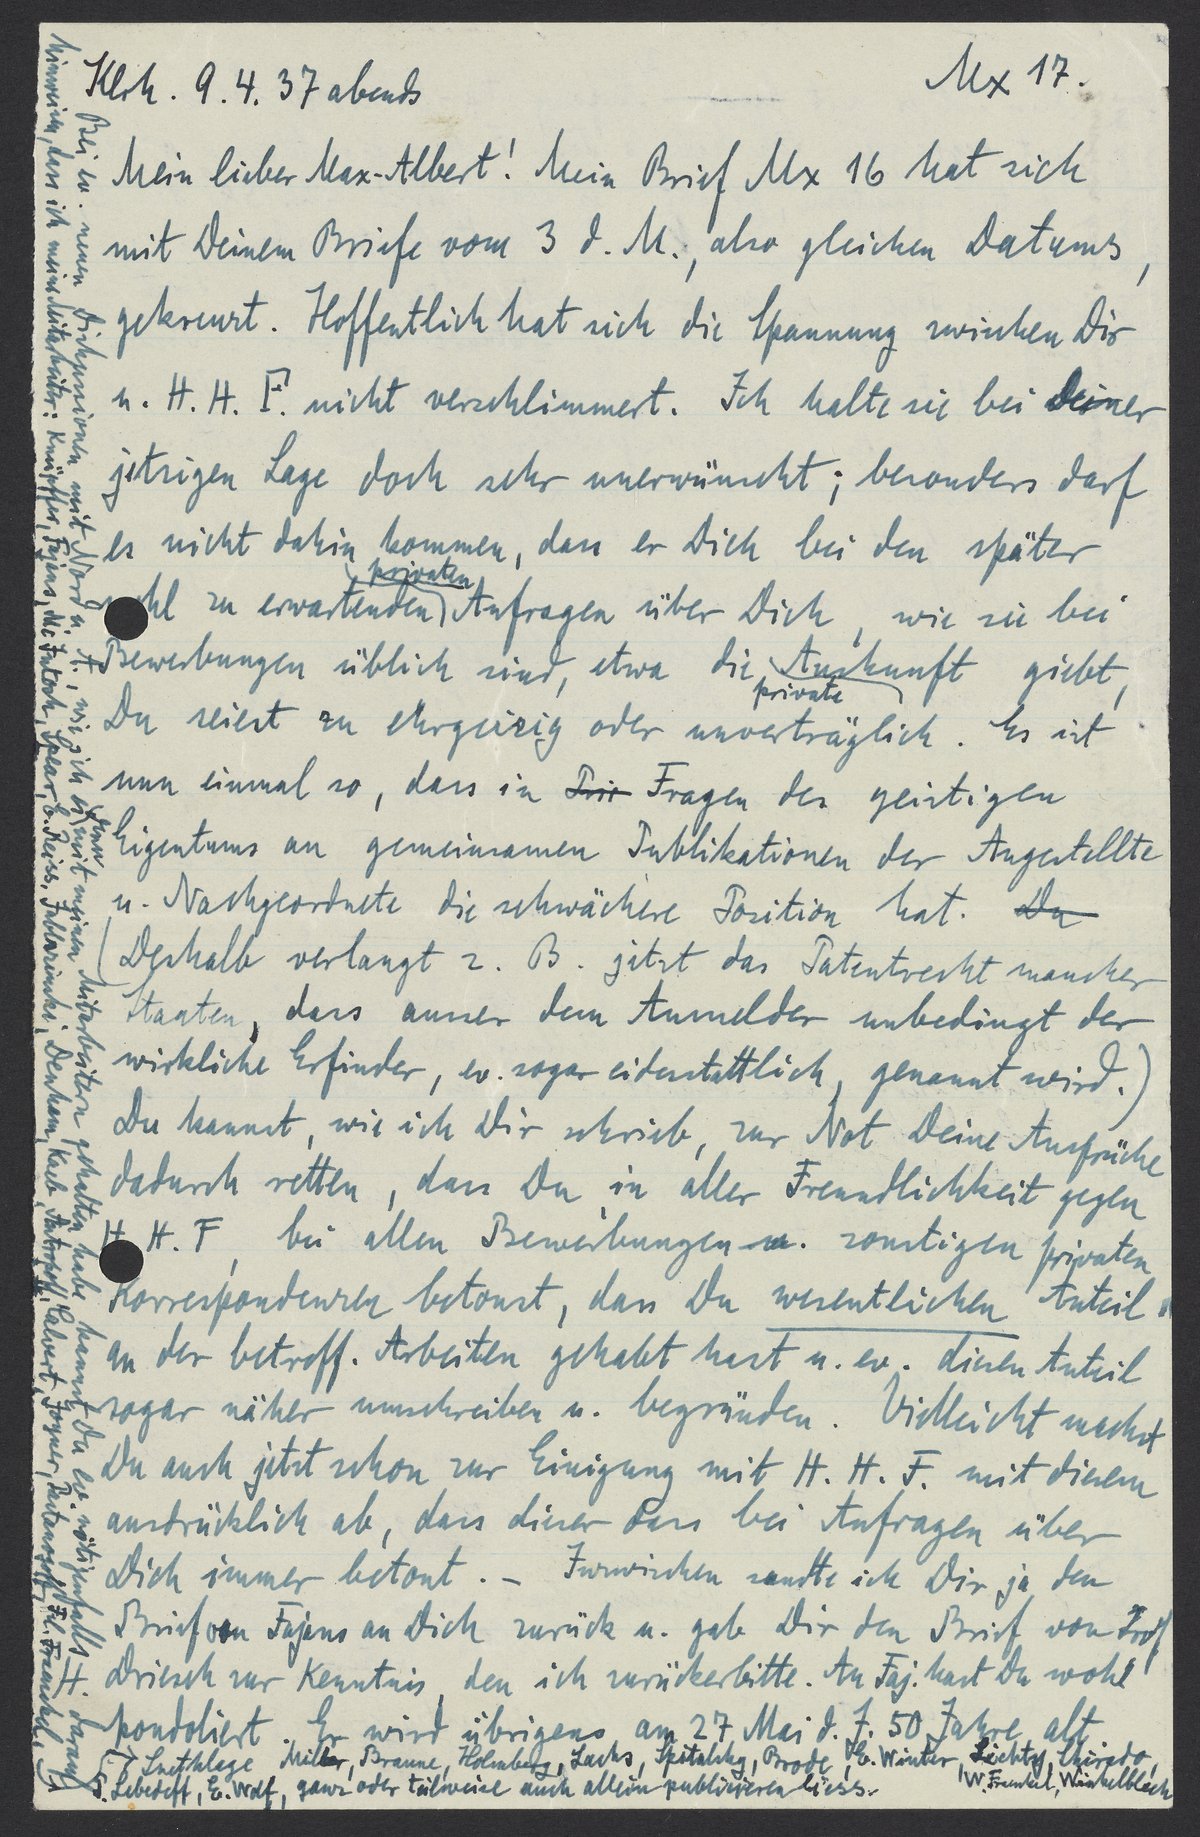 Klrh. 9.4.37 abends
Mx 17.
Mein lieber Max-Albert! Mein Brief Mx 16 hat sich
mit Deinem Briefe vom 3 d. M., also gleichen Datums,
gekreuzt. Hoffentlich hat sich die Spannung zwischen Dir
u. H. H. F. nicht verschlimmert. Ich halte sie bei Deiner
jetzigen Lage doch sehr unerwünscht; besonders darf
es nicht dahin kommen, dass er Dich bei den später
wohl zu erwartenden privaten Anfragen über Dich, wie sie bei
Bewerbungen üblich sind, etwa die private Auskunft giebt,
Du seiest zu ehrgeizig oder unverträglich. Es ist
nun einmal so, dass in Fragen des geistigen
Eigentums an gemeinsamen Publikationen der Angestellte
u. Nachgeordnete die schwächere Position hat. Du
(Deshalb verlangt z. B. jetzt das Patentrecht mancher
Staaten, dass ausser dem Anmelder unbedingt der
wirkliche Erfinder, ev. sogar eidesstattlich, genannt wird.)
Du kannst, wie ich Dir schrieb, zur Not Deine Ansprüche
dadurch retten, dass Du, in aller Freundlichkeit gegen
H. H. F, bei allen Bewerbungen u. sonstigen privaten
Korrespondenzen betonst, dass Du wesentlichen Anteil
an der betreff. Arbeiten gehabt hast u. ev. diesen Anteil
sogar näher umschreiben u. begründen. Vielleicht machst
Du auch jetzt schon zur Einigung mit H. H. F. mit diesem
ausdrücklich ab, dass dieser dass bei Anfragen über
Dich immer betont. – Inzwischen sandte ich Dir ja den
Brief von Fajans an Dich zurück u. gab Dir den Brief von Prof.
Driesch zur Kenntnis, den ich zurückerbitte. An Faj. hast Du wohl
kondoliert. Er wird übrigens am 27 Mai d. J. 50 Jahre alt.
Bei ev. neuen Diskussionen mit Nord u. A., wie ich es denn mit meinen Mitarbeitern gehalten habe, kannst Du ev. nötigenfalls H. darauf
hinweisen, dass ich meine Mitarbeiter: Knüpffer, Fajans, Mc Intosh, Spear, E. Reiss, Jablczinski, Denham, Kaeb, Antropoff, Calvert, Pogner, Frl. Fraenkel,
Snethlage Miller, Braune, Holmberg, Sachs, Spitalsky, Brode, E. Winter, Liechty, Chirado,
G. Lebedeff, E. Wolf, W. Frenkel, Winkelblech
ganz oder teilweise auch allein publizieren liess.